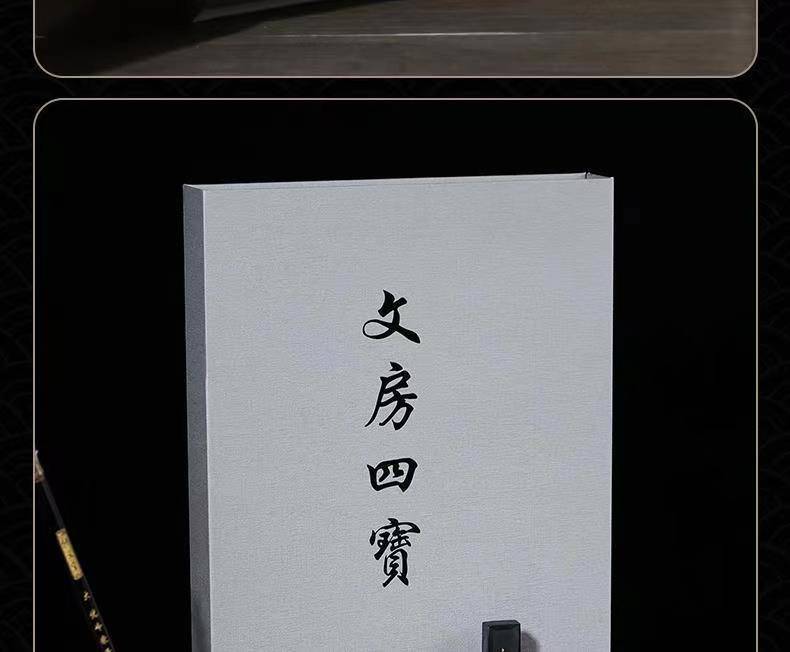 文房四寶